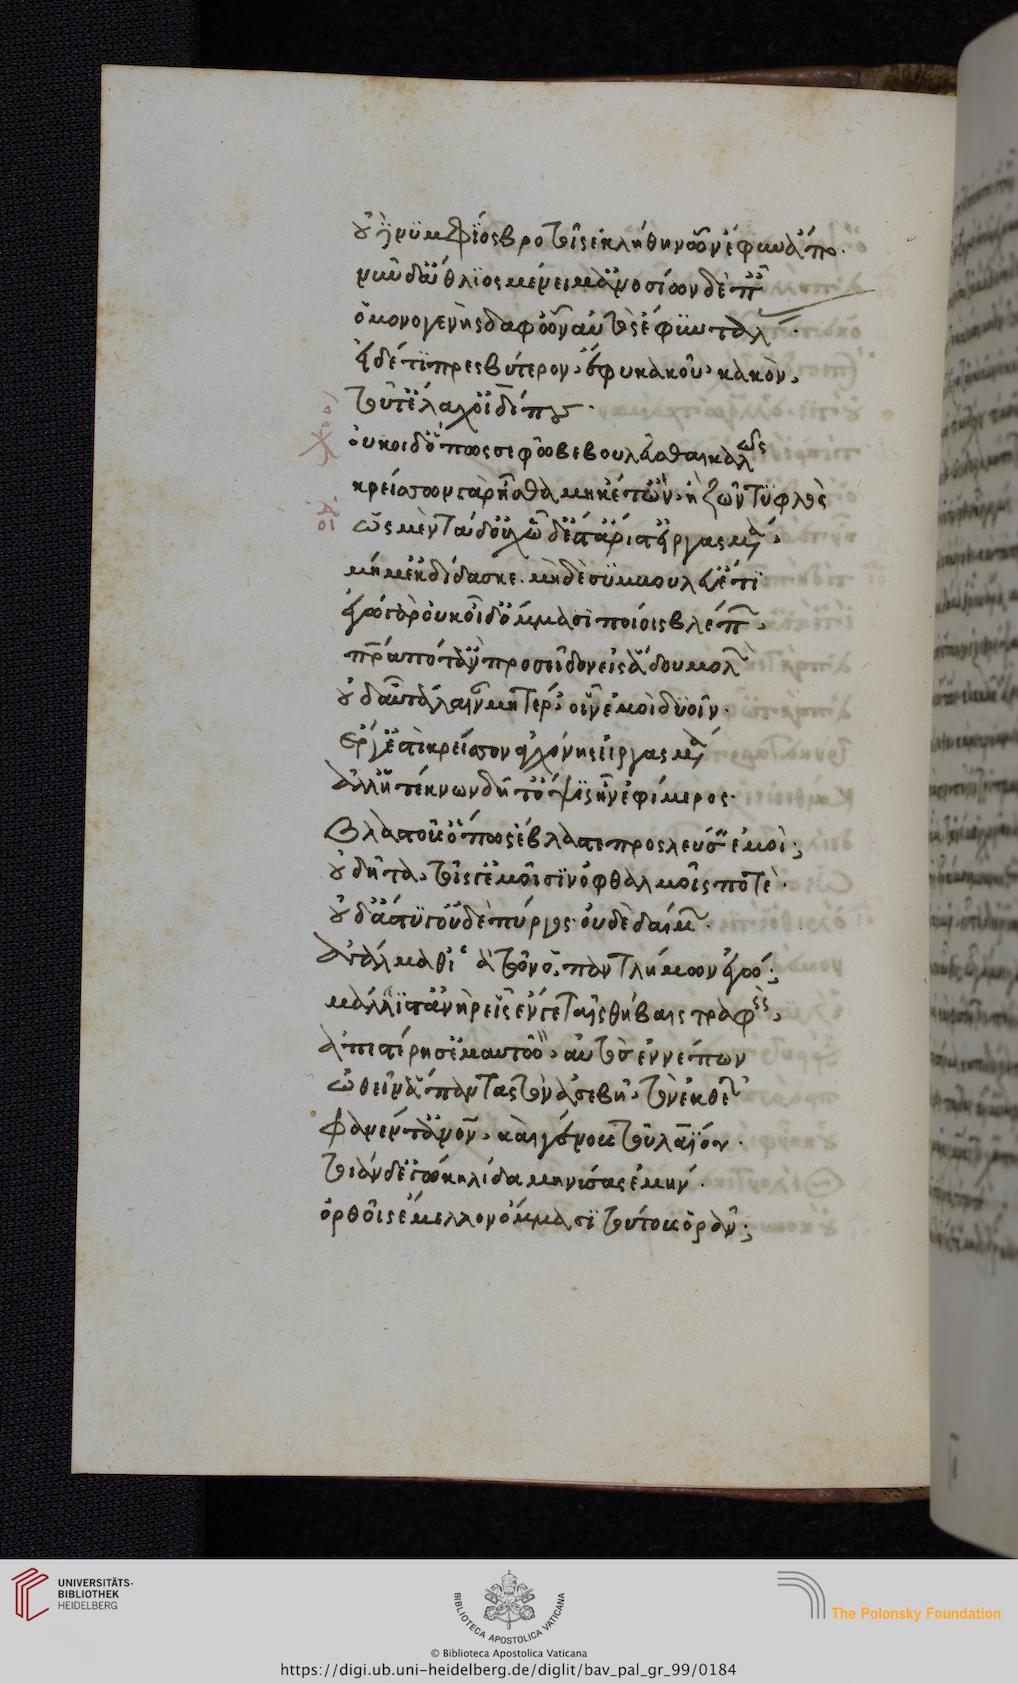 οὐδὲ νυμφίος βροτοῖς ἐκλήθην ὧν ἔφυν ἄπο.
νῦν δ' ἄθλιος μέν εἰμ' ἀνοσίων δὲ παῖς
ὁμογενὴς δ' ἀφ' ὧν αὐτὸς ἔφυν τάλας.
εἰ δέ τι πρεσβύτερον ἔφυ κακοῦ κακὸν,
τοῦτ' ἔλαχ' οἰδίπους.
οὐκ οἶδ' ὅπως σε φῶ βεβουλεῦσθαι καλῶς
κρείσσων γὰρ ἦσθα μηκέτ' ὢν ἢ ζῶν τυφλὸς
ὡς μὲν τάδ' οὐχ ὧδ' ἔστ' ἄριστ' εἰργασμένα,
μή μ' ἐκδίδασκε. μηδὲ συμβούλευ' ἔτι
ἐγὼ γὰρ οὐκ οἶδ' ὄμμασι ποίοις βλέπων
πατέρα ποτ' ἂν προσεῖδον εἰς ᾅδου μολὼν
οὐδ' αὖ τάλαιναν μητέρ' οἷν ἐμοὶ δυοῖν.
ἔργ' ἐστὶ κρείσσον' ἀγχόνης εἰργασμένα
ἀλλ' ἡ τέκνων δῆτ' ὄψις ἦν ἐφίμερος.
βλαστοῦσ' ὅπως ἔβλαστε προσλεύσσειν ἐμοὶ;
οὐ δῆτα, τοῖς γ' ἐμοῖσιν ὀφθαλμοῖς ποτὲ.
οὐδ' ἄστυ γ' οὐδὲ πύργος οὐδὲ δαιμόνων.
ἀγάλμαθ' ἱερὰ τῶν ὁ παντλήμων ἐγώ;
κάλλιστ' ἀνὴρ εἷς ἔν γε ταῖς θήβαις τραφεὶς,
ἀπεστέρησ' ἐμαυτόν, αὐτὸς ἐννέπων
ὠθεῖν ἅπαντας τὸν ἀσεβῆ, τὸν ἐκ θεῶν
φανέντ' ἄναγνον, καὶ γένους τοῦ λαΐου.
τοιάνδ' ἐγὼ κηλίδα μηνύσας ἐμὴν.
ὀρθοῖς ἔμελλον ὄμμασι τούτους ὁρᾶν;
UNIVERSITÄTS-
BIBLIOTHEK
HEIDELBERG
BIBLIOTECA APOSTOLICA VATICANA
The Polonsky Foundation
© Biblioteca Apostolica Vaticana
https://digi.ub.uni-heidelberg.de/diglit/bav_pal_gr_99/0184